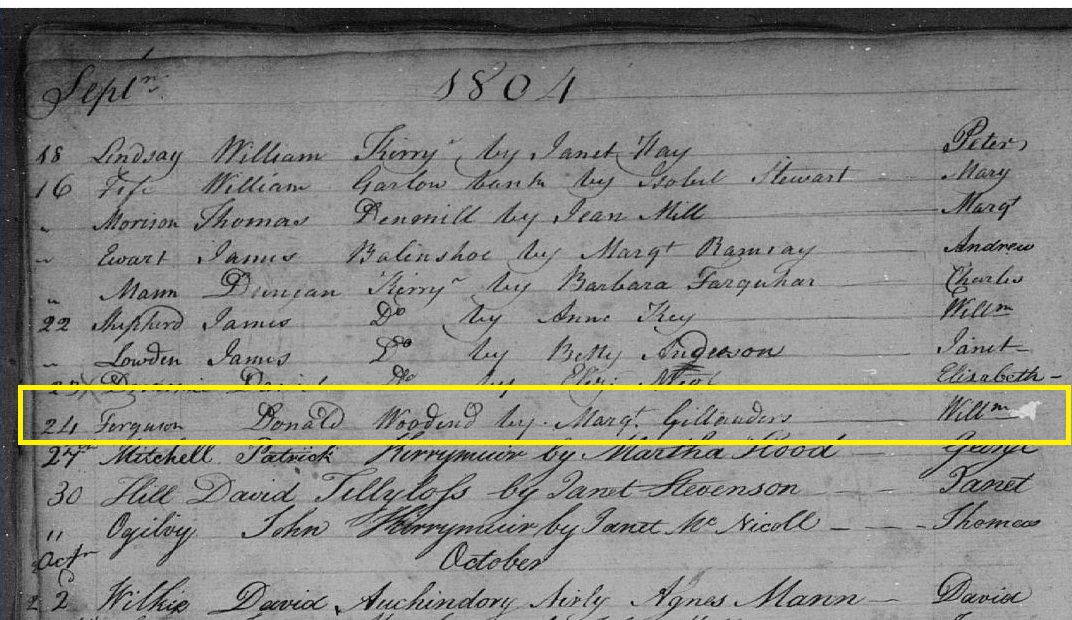 Septr. 1804
18 Lindsay William Kirryr by Janet Hay Peter
16 Fife William Garlow bank by Isobel Stewart Mary
" Morison Thomas Denmill by Jean Mill Margt
" Ewart James Balinshoe by Margt Ramsay Andrew
" Mann Duncan Kirryr by Barbara Farquhar Charles
22 Shepherd James Do by Anne Key Willm
" Lowden James Do by Betty Anderson Janet
23 David Do by Eliz: Elizabeth
24 Ferguson Donald Woodend by Margt. Gillanders Willm
27 Mitchell Patrick Kirrymuir by Martha Hood George
30 Hill David Tillyloss by Janet Stevenson Janet
" Ogilvy John Kirrymuir by Janet Mc Nicoll Thomas
Octr October
2 Wilkie David Auchindory Agnes Mann David